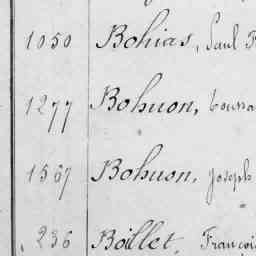 1050 Bohias, Paul
1277 Bohuon, Toussa
1567 Bohuon, Joseph
236 Boillet, Françoi